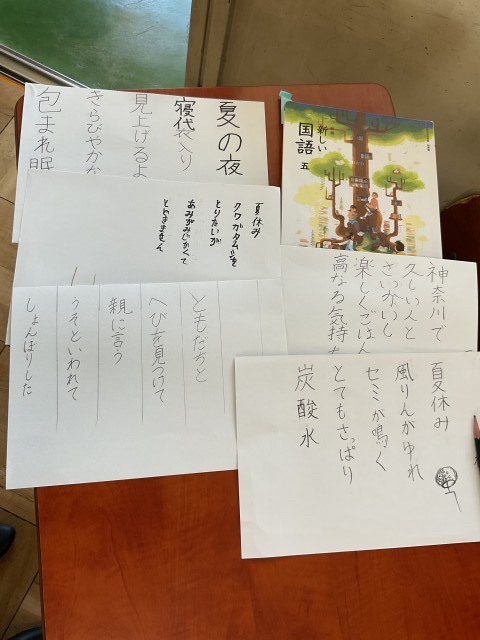 夏の夜
寝袋入り
見上げるよ
きらびやかな
包まれ眠
新しい
国語
五
夏休み
クワガタムシを
とりたいが
あみがみじかくて
とどきません
神奈川で
久しい人と
さいかいし
楽しくごはん
高なる気持ち
ともだちと
へびを見つけて
親に言う
うそといわれて
しょんぼりした
夏休み
風りんがゆれ
セミが鳴く
とてもさっぱり
炭酸水